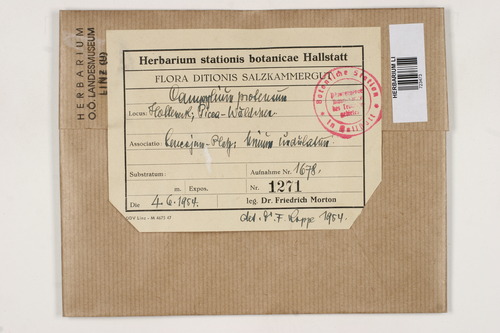 HERBARIUM
O.Ö. LANDESMUSEUM
LINZ (U)
Herbarium stationis botanicae Hallstatt
FLORA DITIONIS SALZKAMMERGUT
Campylium protensum
Locus:
Associatio: Mnium undulatum.
Substratum: Aufnahme Nr. 1678.
m. Expos. Nr. 1271
Die 4.6.1954. leg. Dr. Friedrich Morton
det. Dr. F. 1954.
Botanische Station
in Hallstatt
HERBARIUM LI